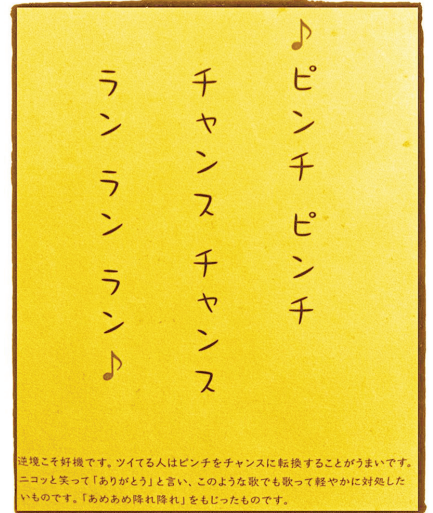 ♪ピンチ ピンチ
チャンス チャンス
ラン ラン ラン♪
逆境こそ好機です。ツイてる人はピンチをチャンスに転換することがうまいです。
ニコッと笑って「ありがとう」と言い、このような歌でも歌って軽やかに対処した
いものです。「あめあめ降れ降れ」をもじったものです。